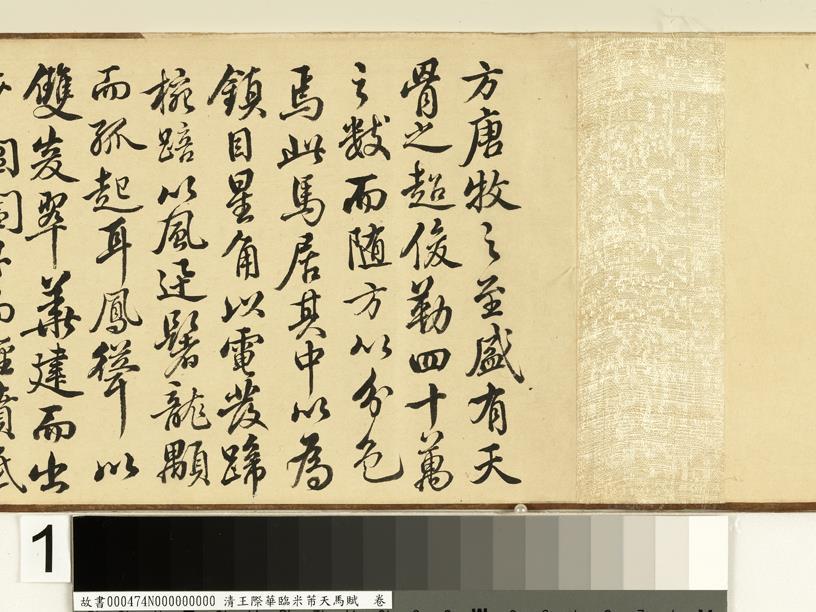 方唐牧之至盛有天
骨之超俊勒四十萬
之數而随方以分色
焉此馬居其中以為
鎮目星角以電發蹄
椀踣以風迸鬐龍顒
而孤起耳鳳聳以
雙峙翠華建而出
1
故書000474N000000000 清王際華臨米芾天馬賦 卷